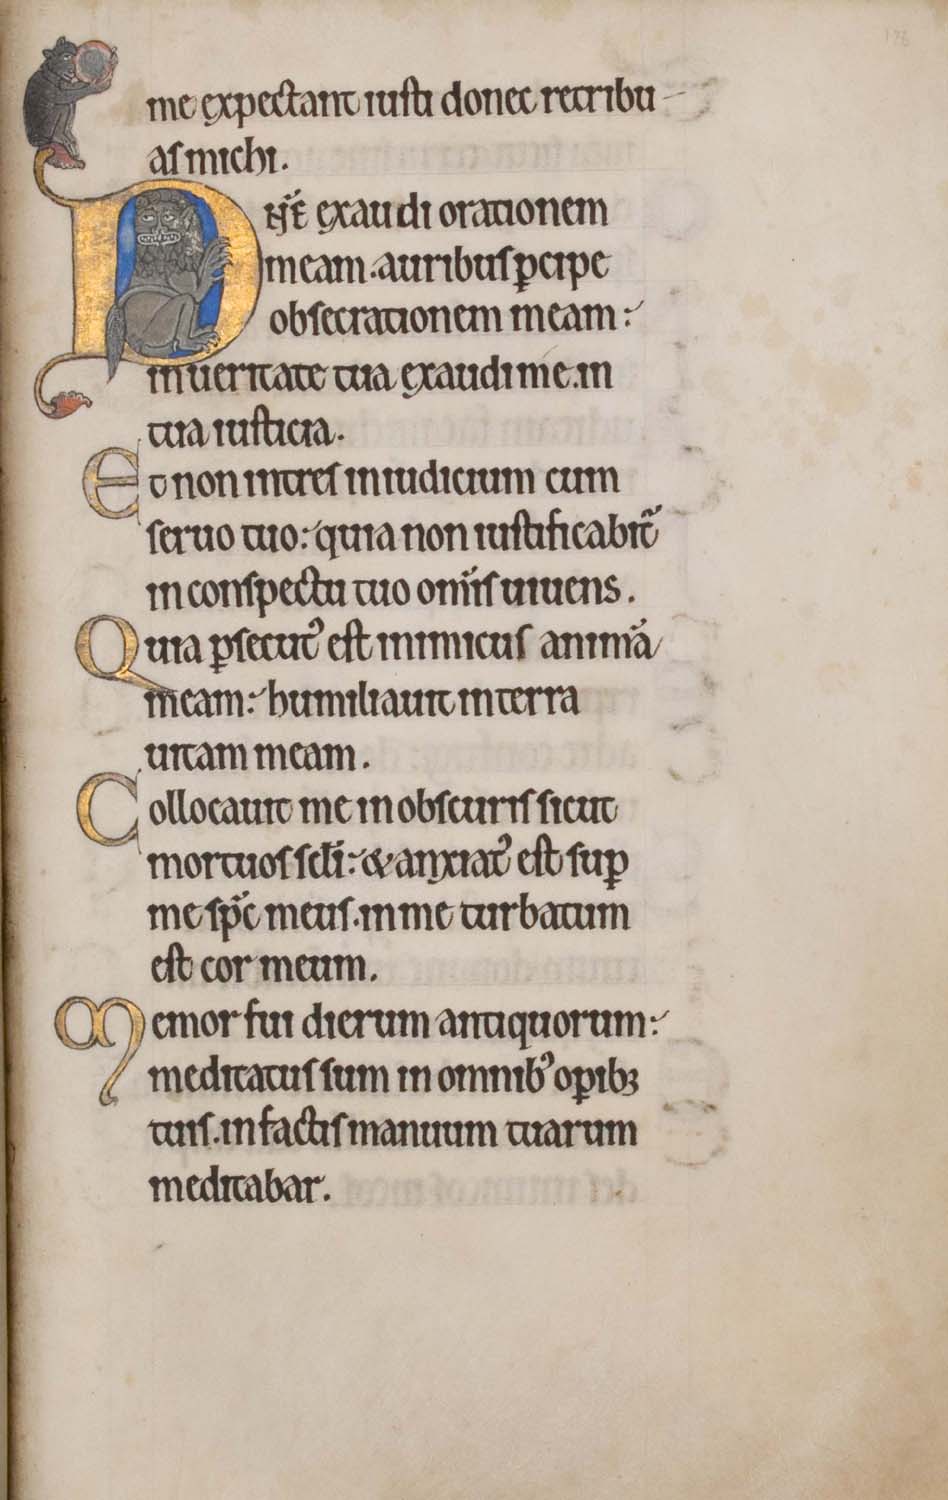 me expectant iusti donec retribu
as michi.
Dn̄e exaudi orationem
meam. auribus ꝑcipe
obsecrationem meam:
in ueritate tua exaudi me. in
tua iusticia.
Et non intres in iudicium cum
seruo tuo: quia non iustificabit᷑
in conspectu tuo om̄is uiuens.
Quia ꝑsecut᷒ est inimicus animā
meam: humiliauit in terra
uitam meam.
Collocauit me in obscuris sicut
mortuos scl̄i: & anxiat᷒ est suꝑ
me sp̄c meus. in me turbatum
est cor meum.
Memor fui dierum antiquorum:
meditatus sum in omnib᷒ oꝑibꝫ
tuis. in factis manuum tuarum
meditabar.